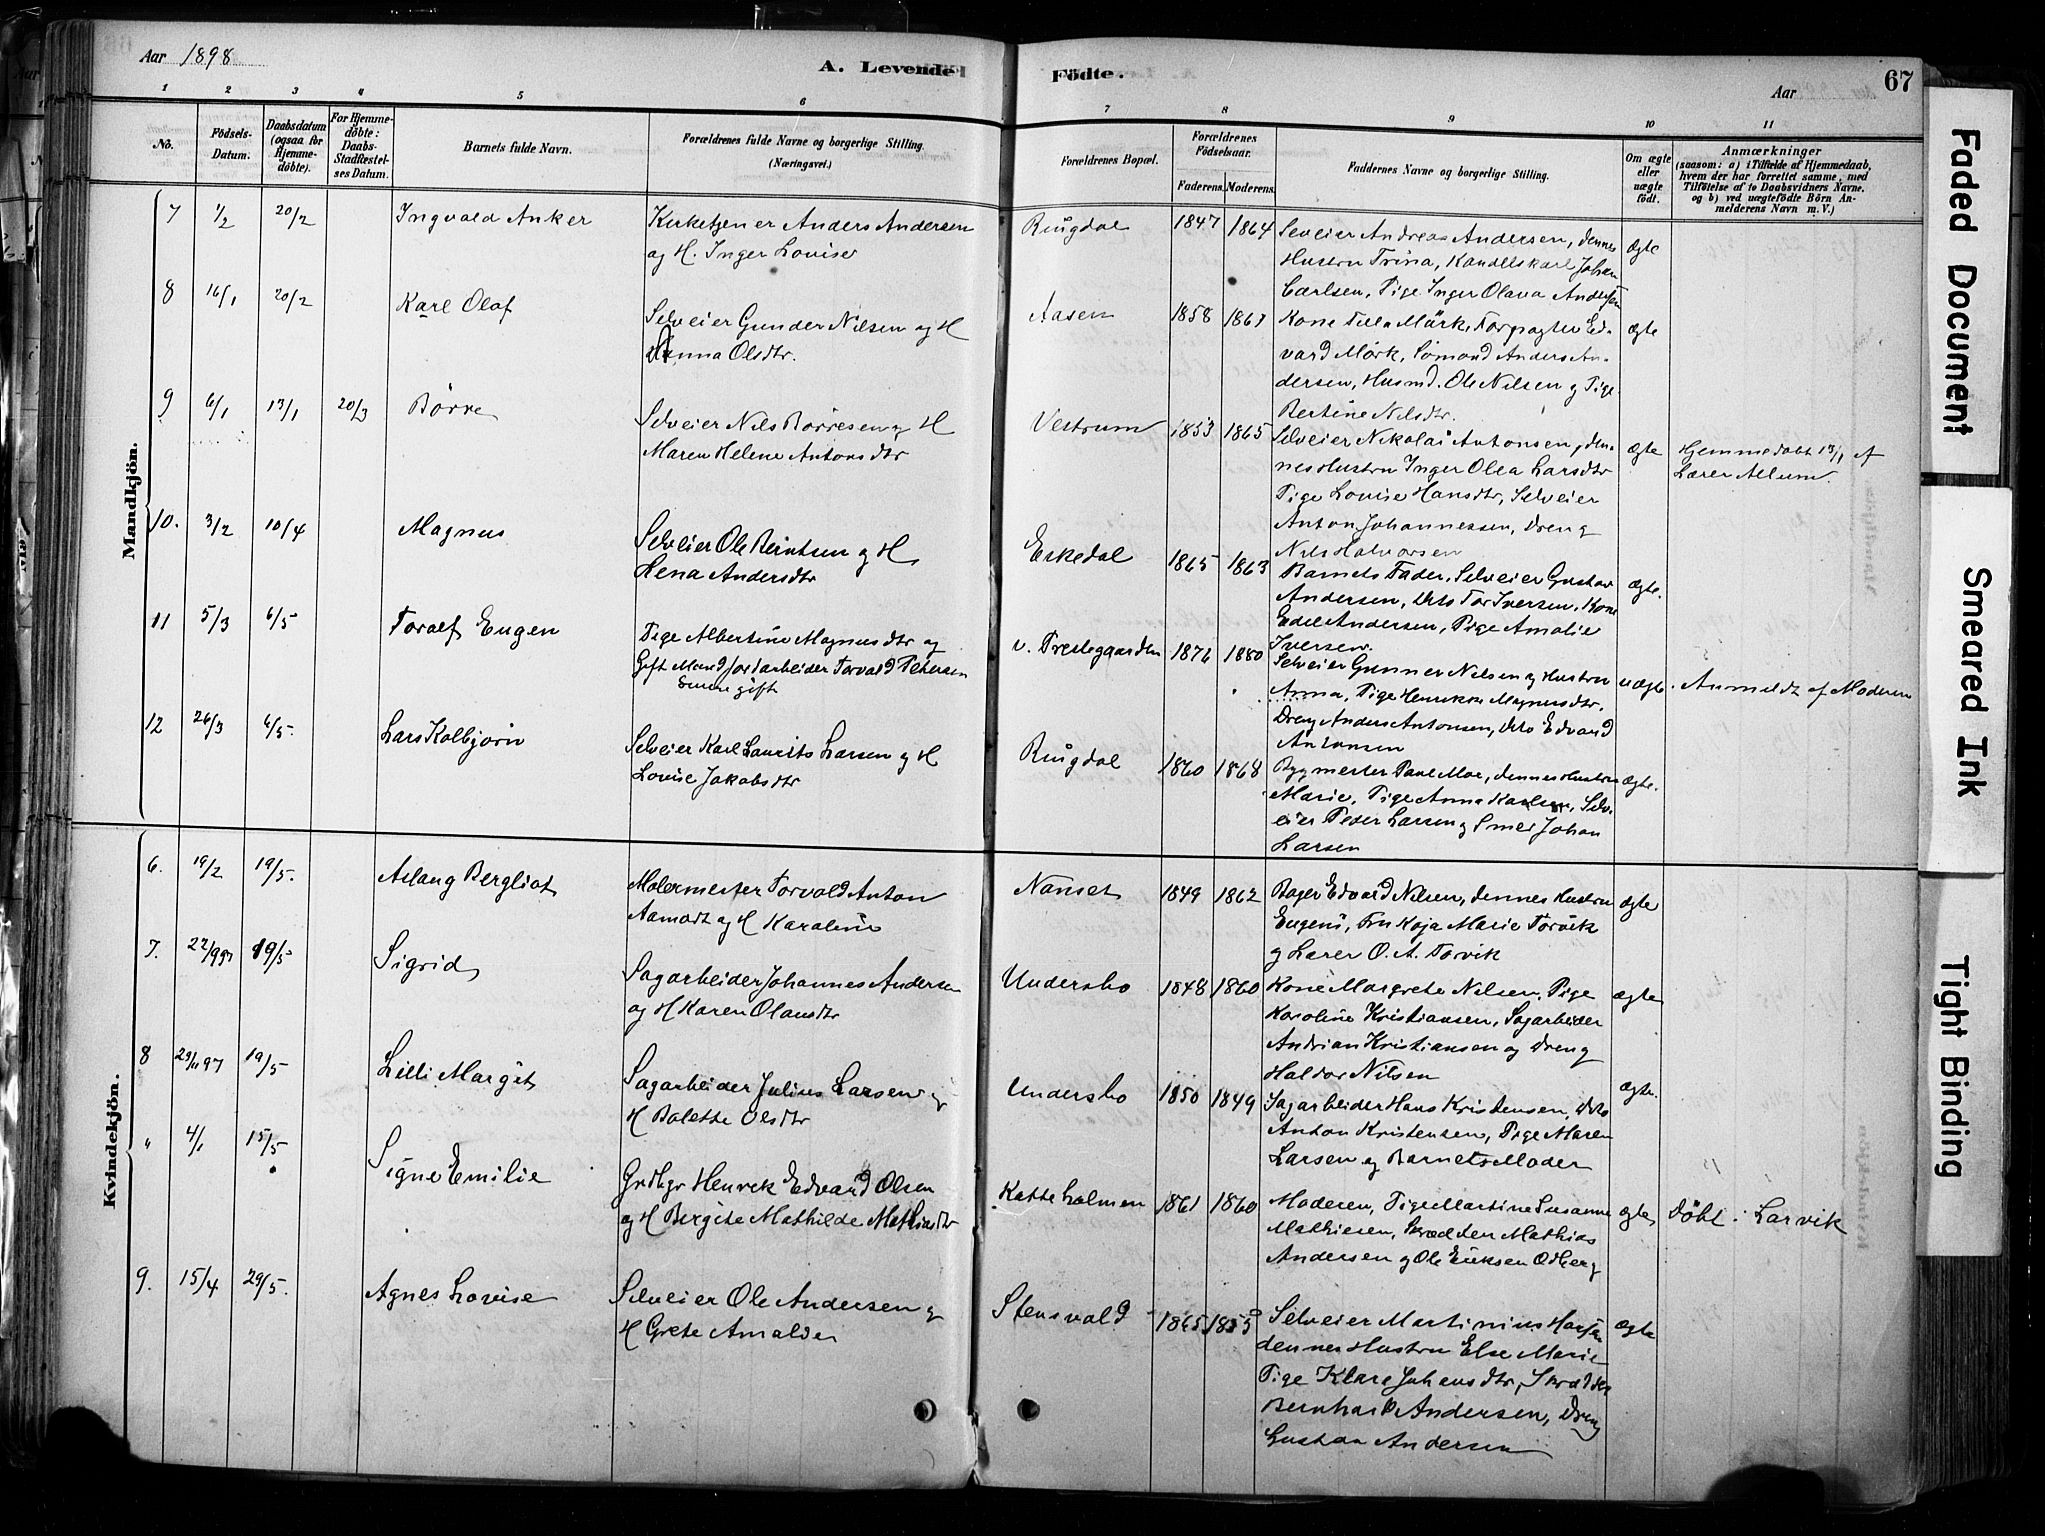 Aar 1898
A. Levende Födte.
Aar
67
1 2 3 4 5 6 7 8 9 10 11
No.
Födsels-Datum.
Daabsdatum (ogsaa for Hjemmedöbte).
For Hjemmedöbte: Daabs-Stadfæstelses Datum.
Barnets fulde Navn.
Forældrenes fulde Navne og borgerlige Stilling. (Næringsvei.)
Forældrenes Bopæl.
Forældrenes Födselsaar.
Faderens. Moderens.
Faddernes Navne og borgerlige Stilling.
Om ægte eller uægte födt.
Anmærkninger
(saasom: a) i Tilfælde af Hjemmedaab, hvem der har forrettet samme, med Tilföielse af to Daabsvidners Navne. og b) ved uægtefödte Börn Anmelderens Navn m. V.)
Mandkjön.
7 1/2 20/2 Ingvald Anker
Kirketjener Anders Andersen
og H. Inger Lovise
Ringdal 1847 1864
Selveier Andreas Andersen, dennes
Hustru Trina, Handelskarl Johan
Carlsen, Pige Inger Olava Andersen
ægte
8 16/1 20/2 Karl Olaf
Selveier Gunder Nilsen og H
Anna Olsdtr.
Aasen 1858 1861
Kone Mörk, Forpagter Ed-
vard Mörk, Sömand Anders An-
dersen, Husmd. Ole Nilsen og Pige
Bertine Nilsdtr.
ægte
9 6/1 13/1 20/3 Börre
Selveier Nils Börresen og H
Maren Helene Antonsdtr
Vestrum 1853 1865
Selveier Nikolai Antonsen, den-
nes Hustru Inger Olea Larsdtr
Pige Lovise Hansdtr, Selveier
Anton Johannessen, Dreng
Nils Halvorsen
ægte
Hjemmedöbt 13/1 af
Lærer Allum.
10. 3/2 10/4 Magnus
Selveier Ole Berntsen og H
Lena Andersdtr
Eskedal 1865 1863
Barnets Fader, Selveier Gustav
Andersen, Do Tor Iversen, Kone
Edel Andersen, Pige Amalie
Iversen.
ægte.
11 5/3 6/5 Toralf Eugen
Pige Albertine Magnusdtr og
Gift Mand Jordarbeider Torvald Petersen
Senere gift
v. Prestegaarden 1876 1880
Selveier Gunner Nilsen og Hustru
Anna, Pige Henrikke Magnusdtr,
Dreng Anders Antonsen, Do Edvard
Antonsen
uægte. Anmeldt af Moderen
12 26/3 6/5. Lars Kolbjörn
Selveier Karl Laurits Larsen og H
Lovise Jakobsdtr
Ringdal 1860 1868
Bygmester Paul Moe, dennes Hustru
Marie, Pige Anna Karlsen, Selv-
eier Peder Larsen og Smed Johan
Larsen
ægte.
Kvindekjön.
6. 19/2 19/5. Aslaug Bergliot
Malermester Torvald Anton
Aamodt og H Karoline
Nanset 1849 1862
Bager Edvard Nilsen, dennes Hustru
Eugeni, Fru Kaja Marie Torvik
og Lærer O. A. Torvik
ægte
7. 22/9 97 19/5 Sigrid
Sagarbeider Johannes Andersen
og H Karen Olausdtr
Undersbo 1848 1860
Kone Margrete Nilsen, Pige
Karoline Kristiansen, Sagarbeider
Andrian Kristiansen og Dreng
Haldor Nilsen
ægte
8 29/11 97 19/5 Lilli Margit
Sagarbeider Julius Larsen og
H Bolette Olsdtr
Undersbo 1850 1849
Sagarbeider Hans Kristensen, Do
Anton Kristensen, Pige Maren
Larsen og Barnets Moder
ægte.
" 4/1 15/5 Signe Emilie
Grdbgr Henrik Edvard Olsen
og H Bergite Mathilde Mathisdtr
Katteholmen 1861 1860
Moderen, Pige Martine Susanne
Mathiesen, Skrædder Mathias
Andersen og Ole Eriksen Odberg
ægte Döbt i Larvik
9. 15/4 29/5. Agnes Lovise
Selveier Ole Andersen og
H Grete Amalde
Stensvold 1865 1855
Selveier Martinius Hansen
dennes Hustru Else Marie
Pige Klara Johansdtr, Skrædder
Bernhard Andersen, Dreng
Gustav Andersen
ægte
Faded Document
Smeared Ink
Tight Binding